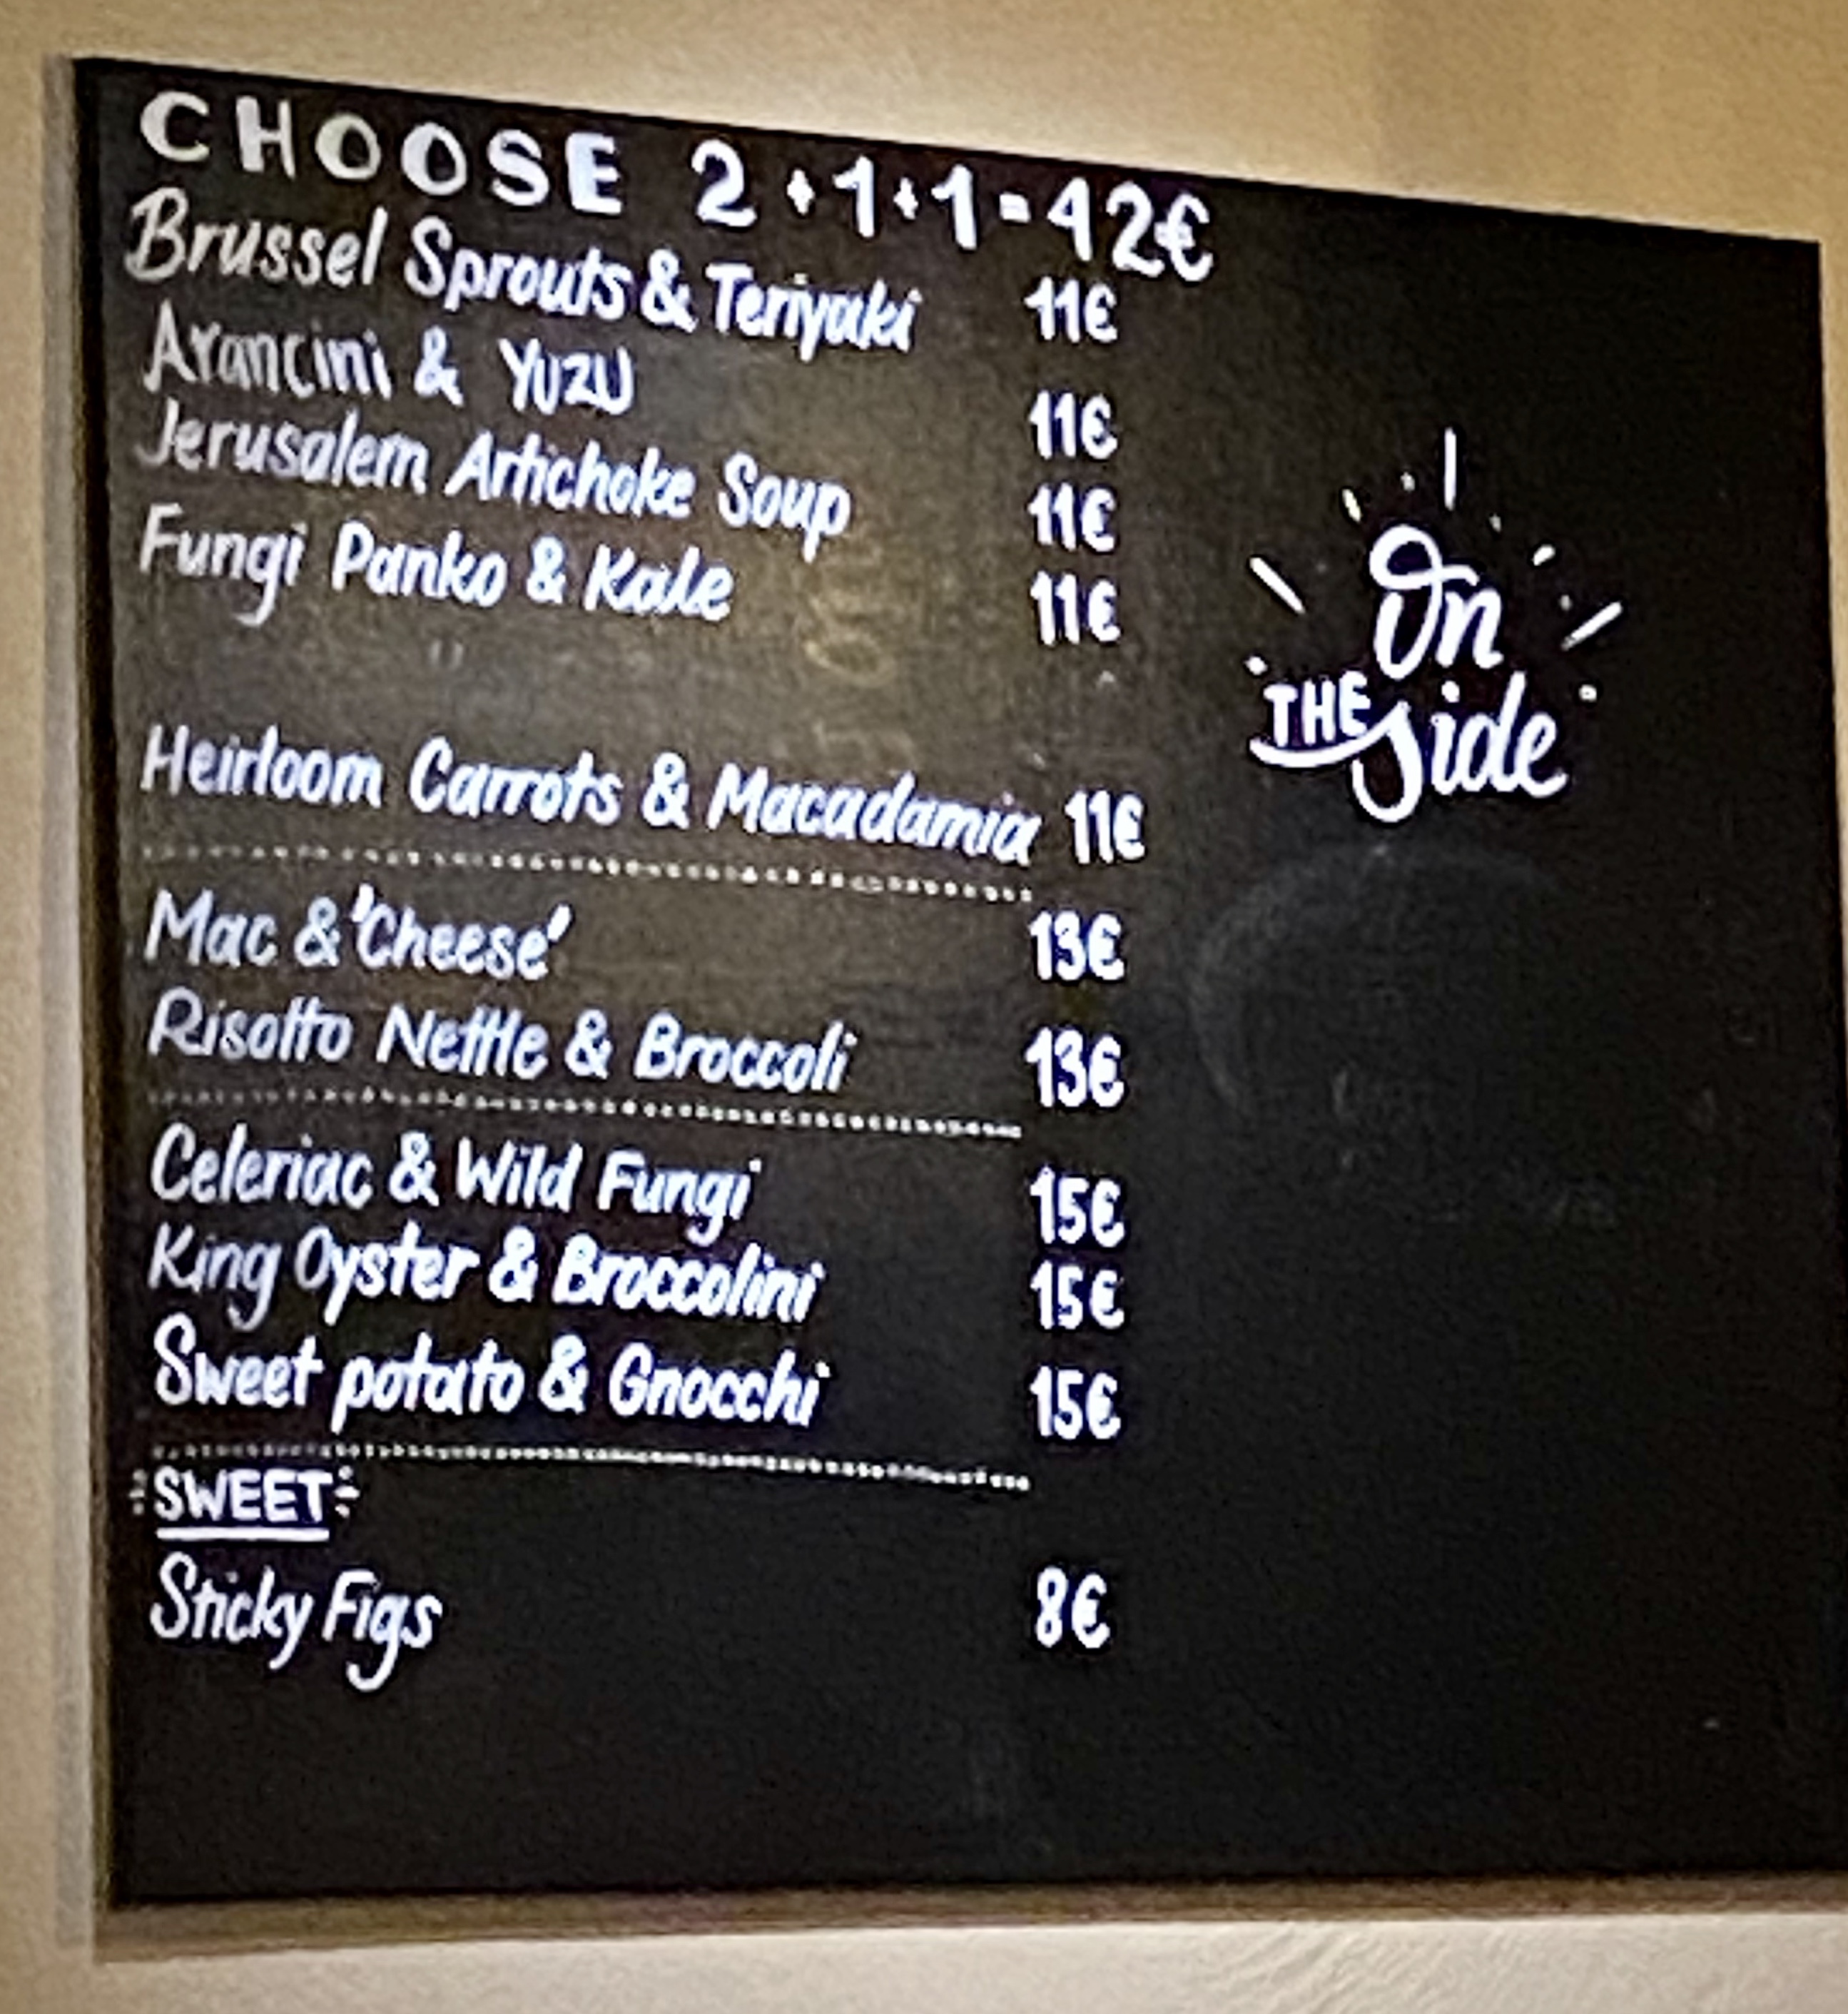 CHOOSE 2+1+1=42€
Brussel Sprouts & Teriyaki 11€
Arancini & YUZU 11€
Jerusalem Artichoke Soup 11€
Fungi Panko & Kale 11€
Heirloom Carrots & Macadamia 11€
Mac & 'Cheese' 13€
Risotto Nettle & Broccoli 13€
Celeriac & Wild Fungi 15€
King Oyster & Broccolini 15€
Sweet potato & Gnocchi 15€
SWEET
Sticky Figs 8€
On
THE side